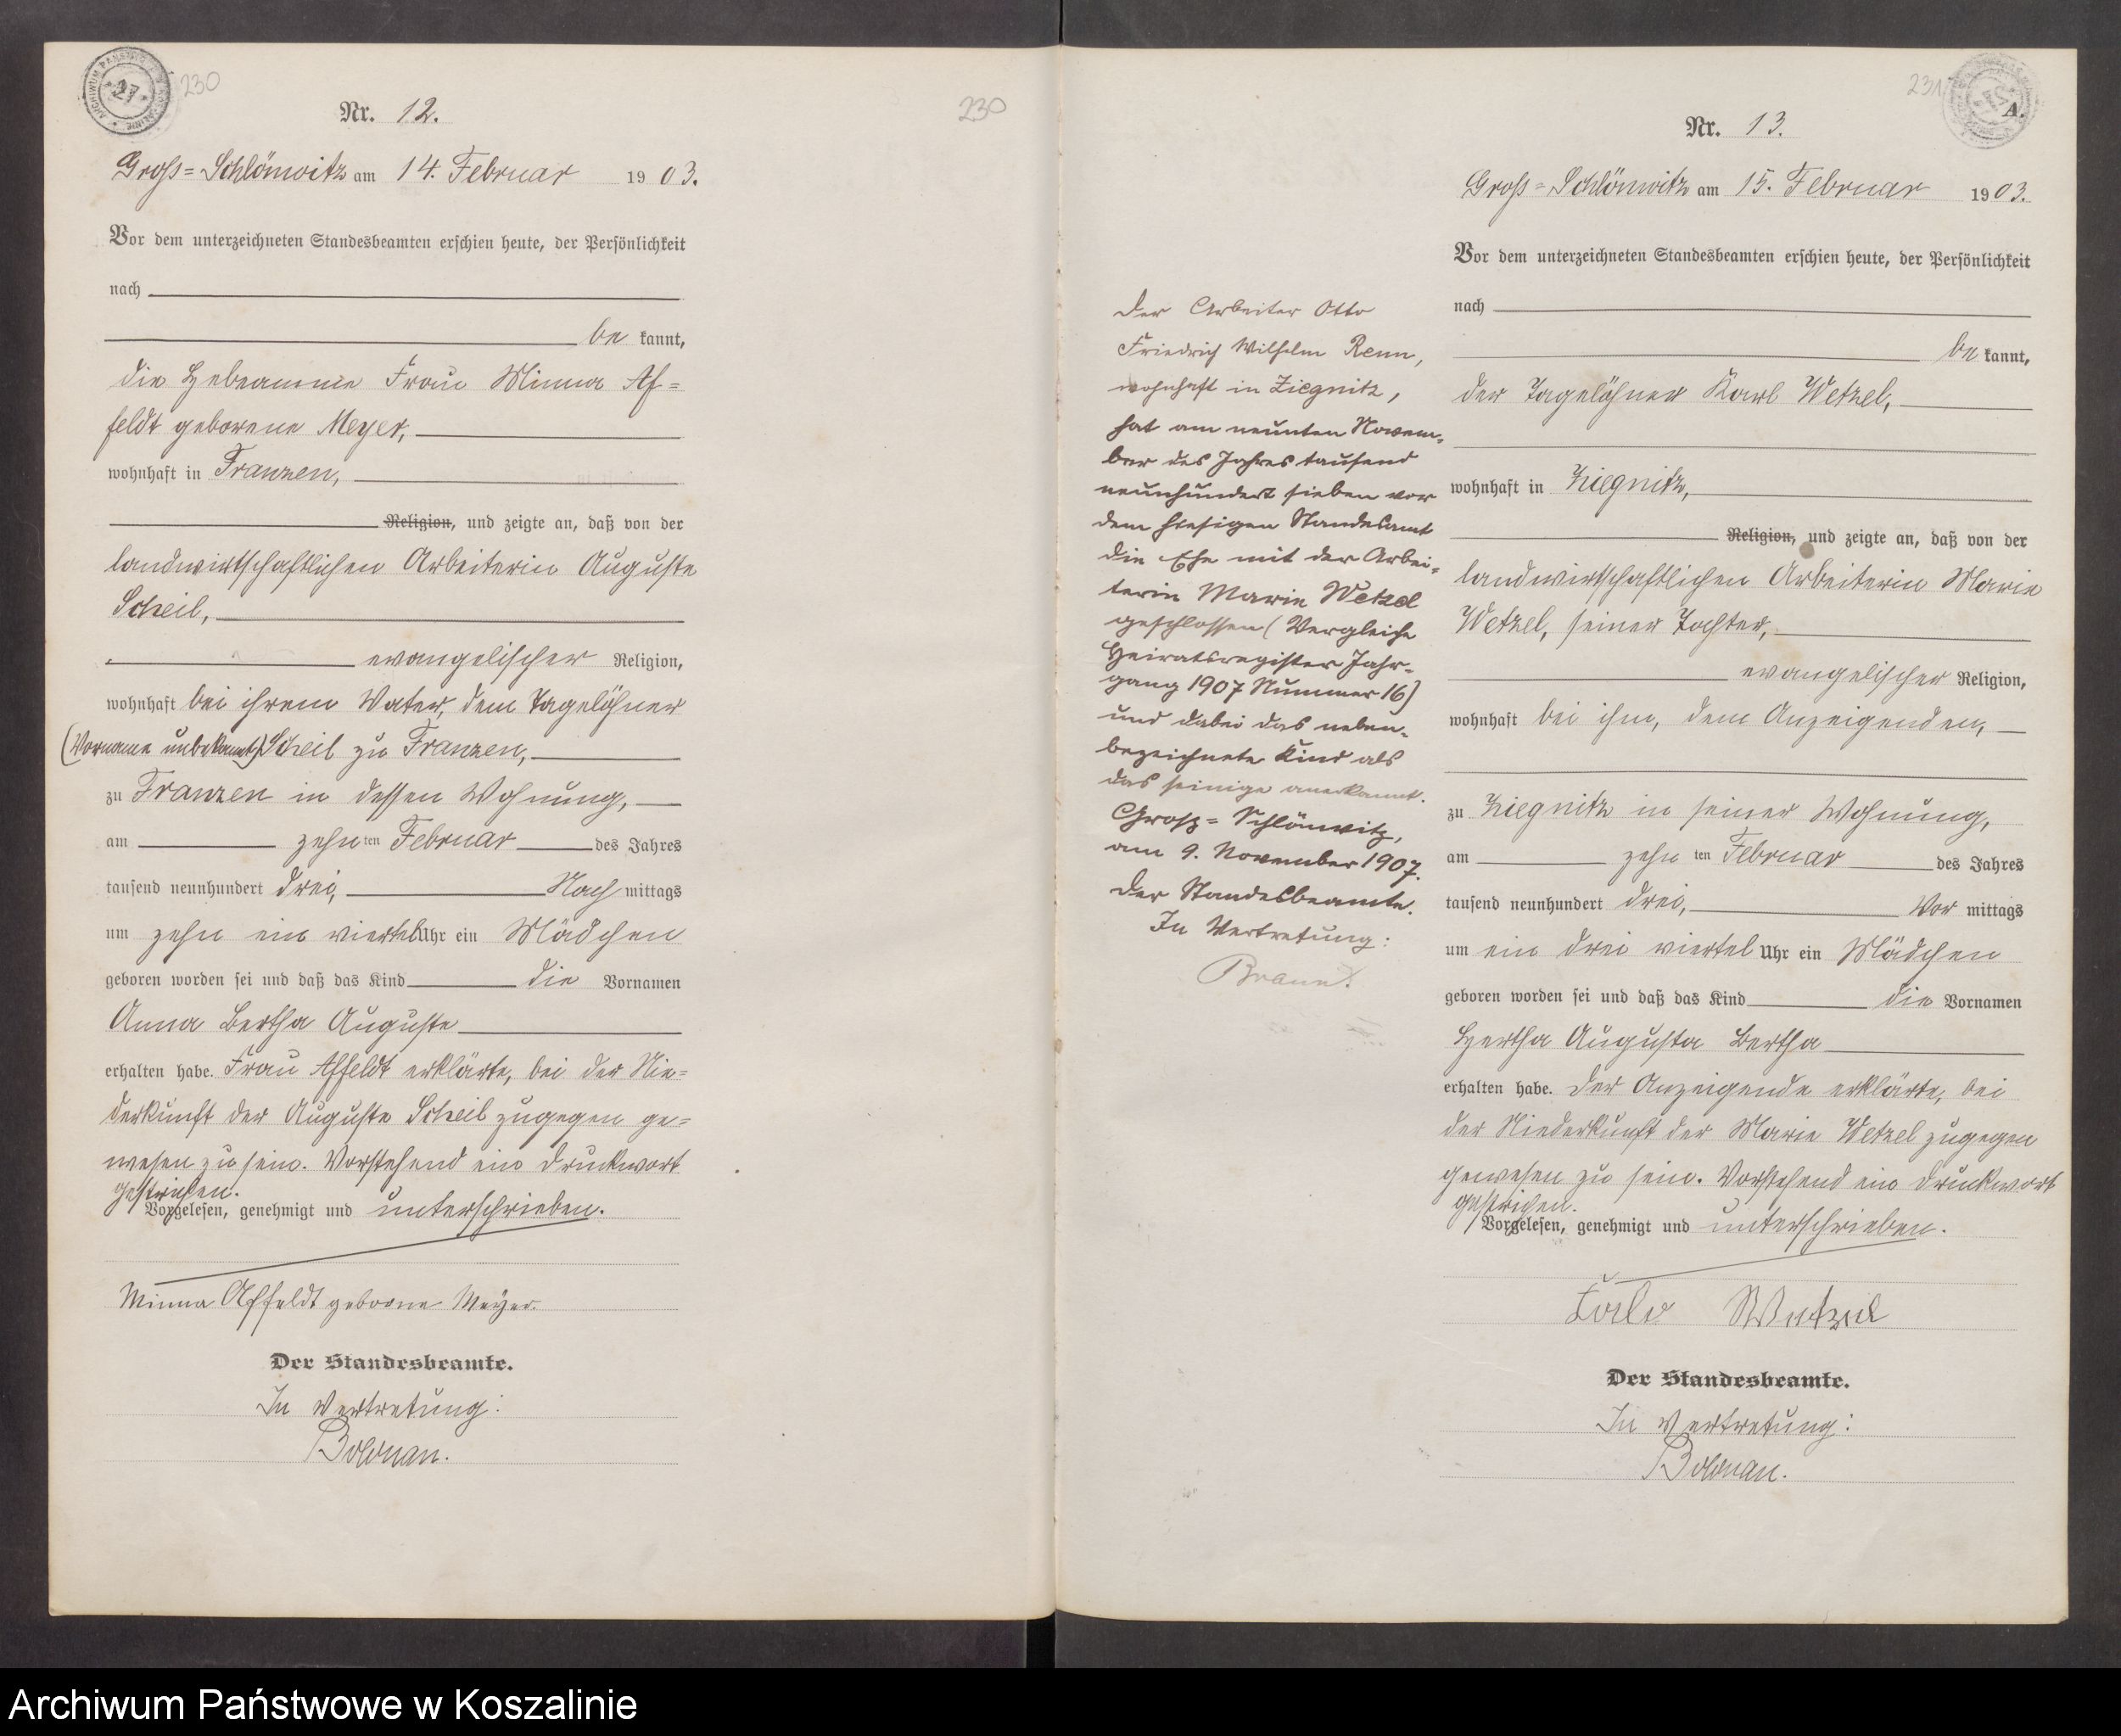 230
Nr. 12.
Groß=Schlönwitz am 14. Februar 1903.
Vor dem unterzeichneten Standesbeamten erschien heute, der Persönlichkeit
nach
be kannt,
die Hebeamme Frau Minna Af=
feldt geborene Meyer,
wohnhaft in Franzen,
Religion, und zeigte an, daß von der
landwirtschaftlichen Arbeiterin Auguste
Scheil,
evangelischer Religion,
wohnhaft bei ihrem Vater, dem Tagelöhner
(Vorname unbekannt) Scheil zu Franzen,
zu Franzen in dessen Wohnung,
am zehnten Februar des Jahres
tausend neunhundert drei, Nach mittags
um zehn ein viertel Uhr ein Mädchen
geboren worden sei und daß das Kind die Vornamen
Anna Bertha Auguste
erhalten habe. Frau Affeldt erklärte, bei der Nie=
derkunft der Auguste Scheil zugegen ge=
wesen zu sein. Vorstehend ein Druckwort
gestrichen.
Vorgelesen, genehmigt und unterschrieben.
Minna Affeldt geborne Meyer.
Der Standesbeamte.
In Vertretung:
230
Der Arbeiter Otto
Friedrich Wilhelm Renn,
wohnhaft in Ziegnitz,
hat am neunten Novem=
ber des Jahres tausend
neunhundert sieben vor
dem hiesigen Standesamt
die Ehe mit der Arbei=
terin Marie Wetzel
geschlossen (Vergleiche
Heiratsregister Jahr=
gang 1907 Nummer 16)
und dabei das neben=
bezeichnete Kind als
das seinige anerkannt.
Grosz=Schlönwitz,
am 9. November 1907.
Der Standesbeamte.
In Vertretung:
231
A.
Nr. 13.
Groß=Schlönwitz am 15. Februar 1903.
Vor dem unterzeichneten Standesbeamten erschien heute, der Persönlichkeit
nach
be kannt,
der Tagelöhner Karl Wetzel,
wohnhaft in Ziegnitz,
Religion, und zeigte an, daß von der
landwirtschaftlichen Arbeiterin Marie
Wetzel, seiner Tochter,
evangelischer Religion,
wohnhaft bei ihm, dem Anzeigenden,
zu Ziegnitz in seiner Wohnung,
am zehn ten Februar des Jahres
tausend neunhundert drei, Vor mittags
um ein drei viertel Uhr ein Mädchen
geboren worden sei und daß das Kind die Vornamen
Hertha Augusta Bertha
erhalten habe. Der Anzeigende erklärte, bei
der Niederkunft der Marie Wetzel zugegen
gewesen zu sein. Vorstehend ein Druckwort
gestrichen.
Vorgelesen, genehmigt und unterschrieben.
Wetzel
Der Standesbeamte.
In Vertretung:
Archiwum Państwowe w Koszalinie